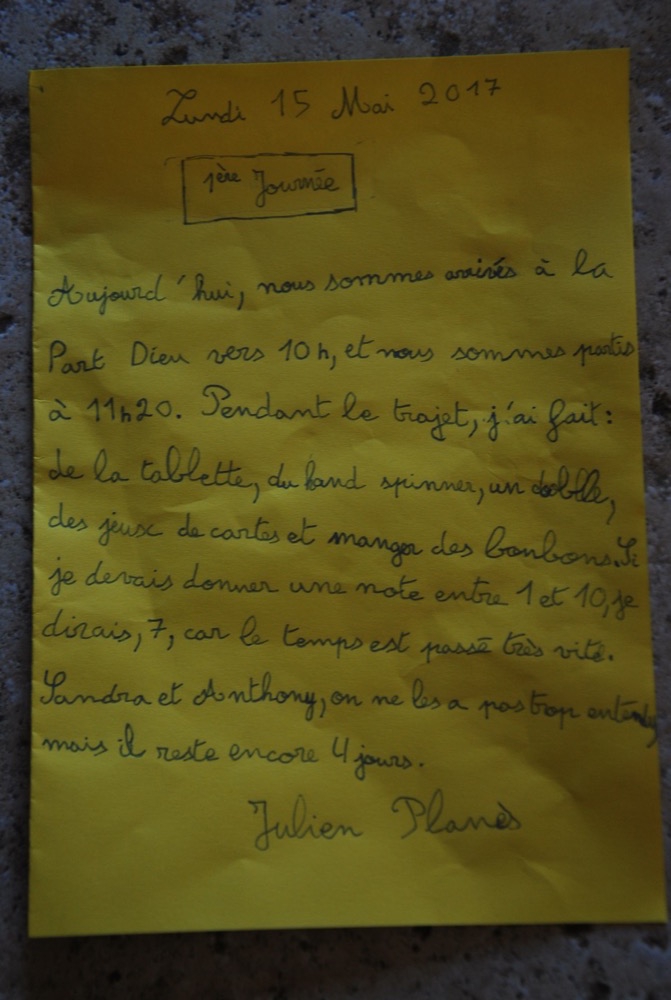 Lundi 15 Mai 2017
1ère Journée
Aujourd'hui, nous sommes arrivés à la
Part Dieu vers 10h, et nous sommes partis
à 11h20. Pendant le trajet, j'ai fait:
de la tablette, du hand spinner, un dobble,
des jeux de cartes et manger des bonbons. Si
je devais donner une note entre 1 et 10, je
dirais, 7, car le temps est passé très vite.
Sandra et Anthony, on ne les a pas trop entendu,
mais il reste encore 4 jours.
Julien Planès